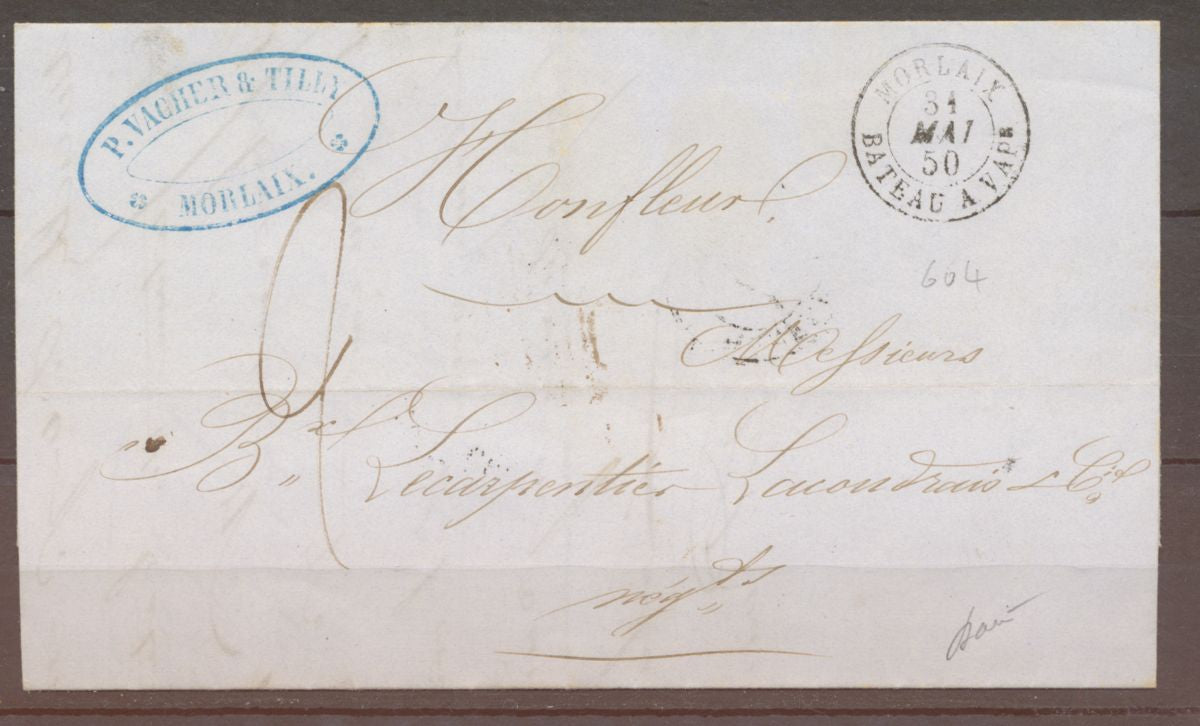 P. VACHER & TILLY
MORLAIX.
MORLAIX
31
MAI
50
BATEAU A VAPR
Honfleur.
604
2
Messieurs
Bx Lecarpentier Lacoudrais & Cie
négts